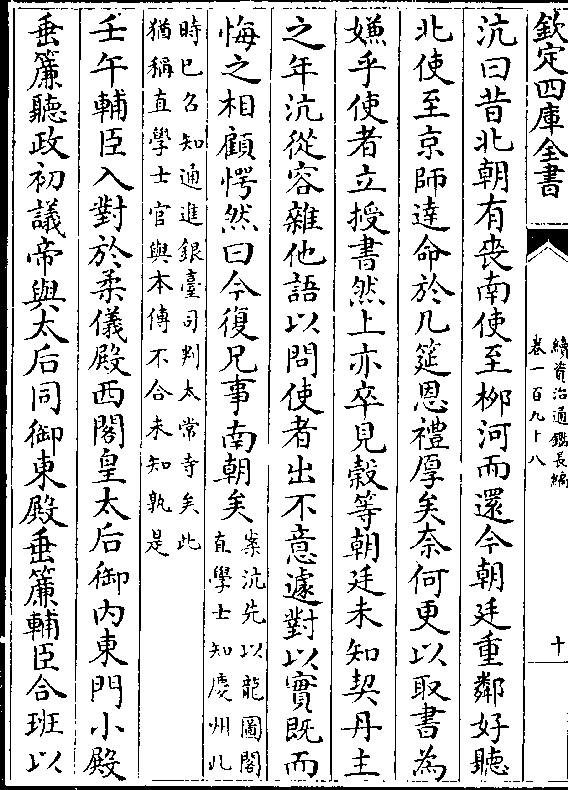 欽定四庫全書
續資治通鑑長編
卷一百九十八
十
沆曰昔北朝有喪南使至栁河而還今朝廷重鄰好聽
北使至京師達命於几筵恩禮厚矣奈何更以取書為
嫌乎使者立授書然上亦卒見嗀等朝廷未知契丹主
之年沆從容雜他語以問使者出不意遽對以實既而
悔之相顧愕然曰今復兄事南朝矣
案沆先以龍圖閣
直學士知慶州此
時已召知通進銀臺司判太常寺矣此
猶稱直學士官與本傳不合未知孰是
壬午輔臣入對於柔儀殿西閤皇太后御内東門小殿
垂簾聽政初議帝與太后同御東殿垂簾輔臣合班以